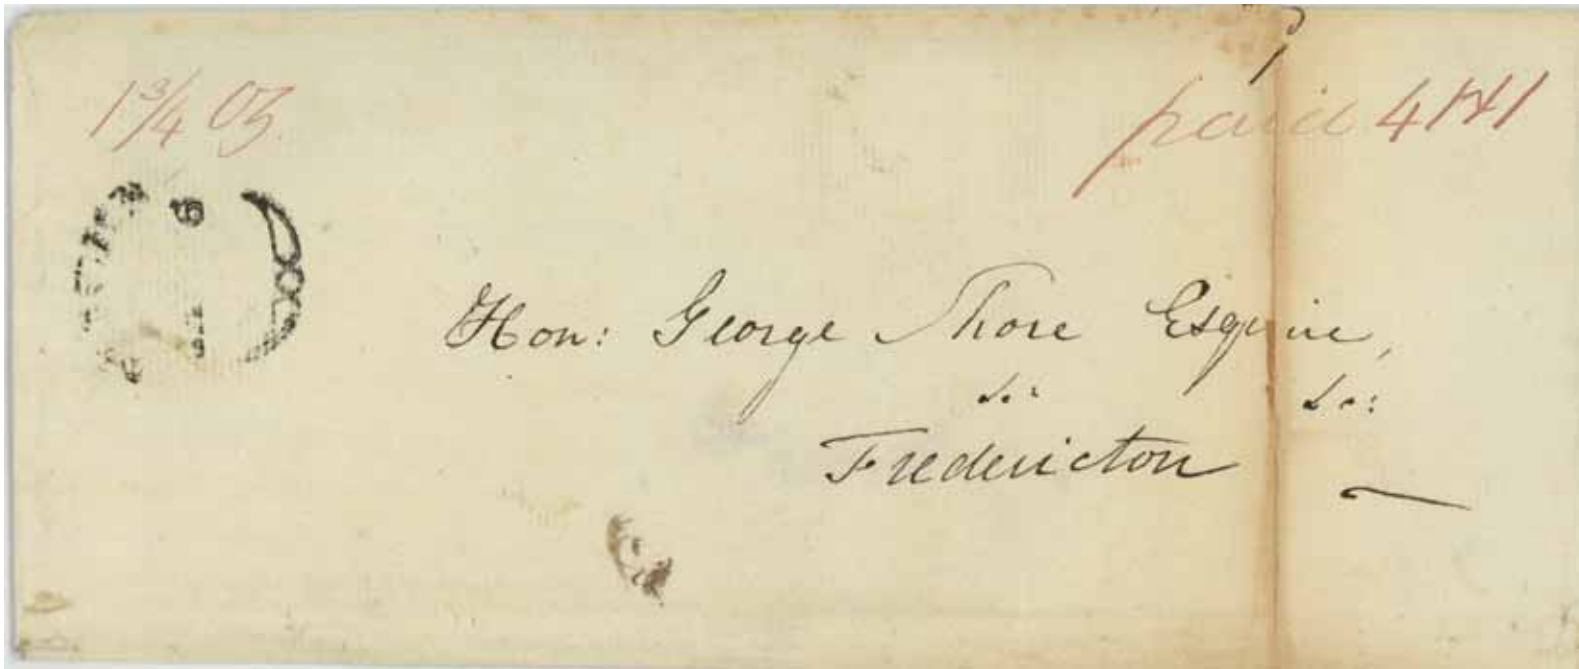 1 3/4 oz.
paid 4/1
Hon: George Shore Esquire,
&c: &c:
Fredericton